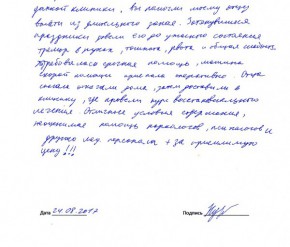 данной клинике, Вы помогли моему отцу
выйти из длительного запоя. Затянувшиеся
праздники довели его до ужасного состояния
тремор в руках, тошнота, рвота и общая
Потребовалась срочная помощь, машина
скорой помощи приехала оперативно. Отца
сначала откачали дома, затем доставили в
клинику, где провели курс восстановительного
лечения. Отличные условия содержания,
неоценимая помощь наркологов, психологов и
другого мед. персонала + за приемлемую
цену!!!
Дата 24.08.2017 Подпись